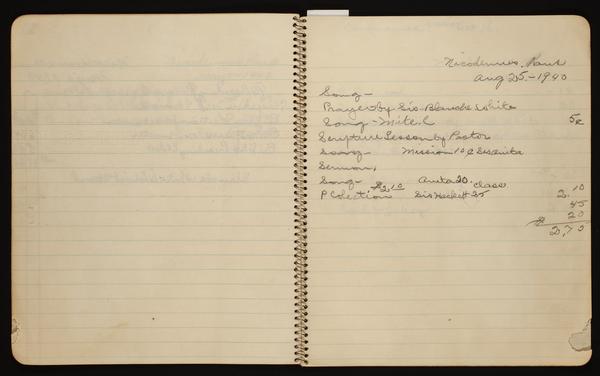 Nicodemus, Kans
Aug 25-1940
Song-
Prayer by Sis. Blanche White
Song-
Scripture Lesson by Pastor
Song- Mission 10¢
Sermon,
Song- Anita 20. class
P Colection $2.10 Sis 25
2.10
45
20
$ 2.70